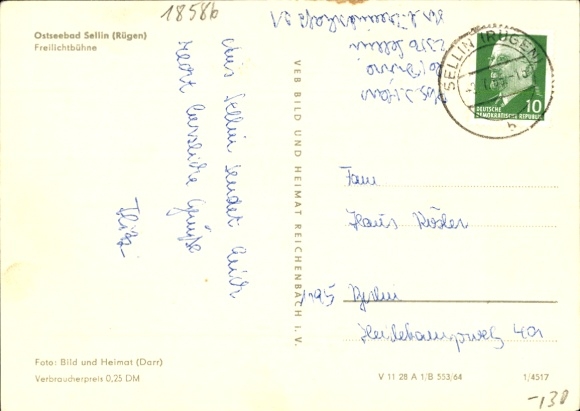 18586
Ostseebad Sellin (Rügen)
Freilichtbühne
Aus Sellin sendet Euch
recht herzliche Grüße
VEB BILD UND HEIMAT REICHENBACH I. V.
2356 Sellin
SELLIN (RÜGEN)
10
DEUTSCHE
DEMOKRATISCHE REPUBLIK
b
Fam
Haus
1195 Berlin
Heidekampweg 401
Foto: Bild und Heimat (Darr)
Verbraucherpreis 0,25 DM
V 11 28 A 1/B 553/64
1/4517
-130